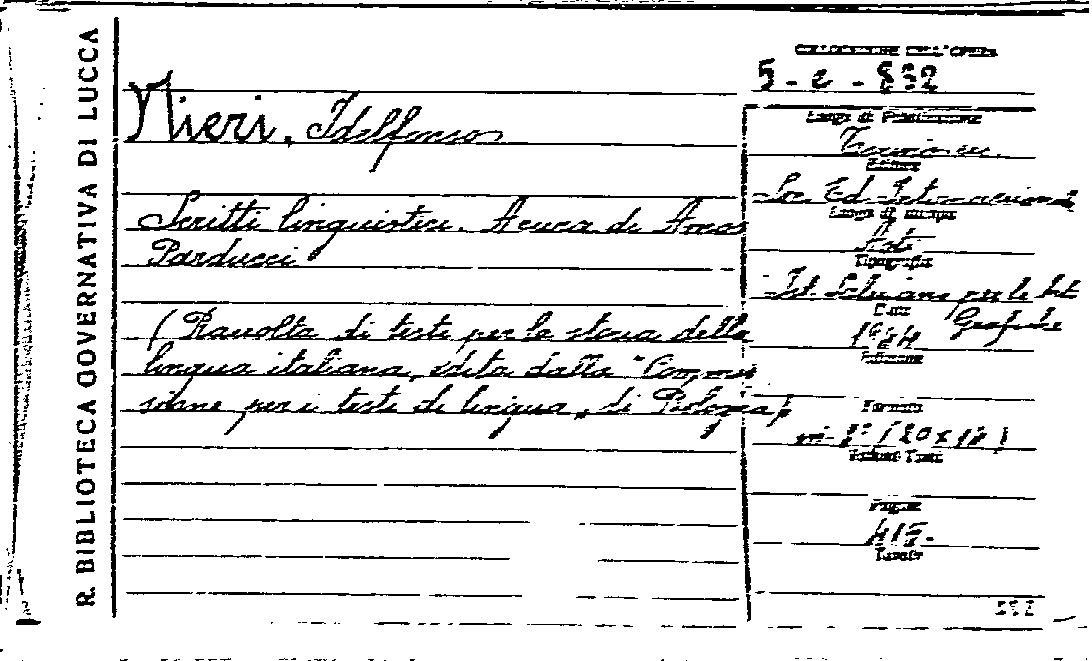 R. BIBLIOTECA GOVERNATIVA DI LUCCA
Nieri, Idelfonso
Scritti linguistici. A cura di Amos
Parducci
(Raccolta di testi per la storia della
lingua italiana, edita dalla "Commis
sione per i testi di lingua„ di Bologna)
COLLOCAZIONE DELL'OPERA
Luogo di Pubblicazione
Torino
Editore
Soc. Ed. Internazionale
Luogo di stampa
Asti
Tipografia
Ist. Salesiano per le Arti
Grafiche
Data
1944
Edizione
Formato
in-8° (20x
Pagine
415.
Tavole